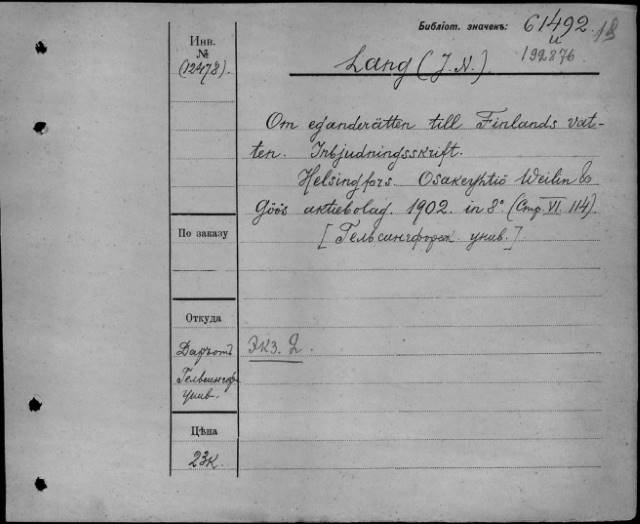 Библіот. значекъ: 61492
и
192876
18
Инв.
№
(12478).
Lang (J. N.)
Om eganderätten till Finlands vat-
ten. Inbjudningsskrift.
Helsingfors. Osakeyhtiö Weilin &
Göös aktiebolag. 1902. in 8° (Стр. VI. 114).
[Гельсингфорск. унив.]
По заказу
Откуда
Даръ отъ
Гельсингф.
унив.
Экз. 2.
Цѣна
23к.